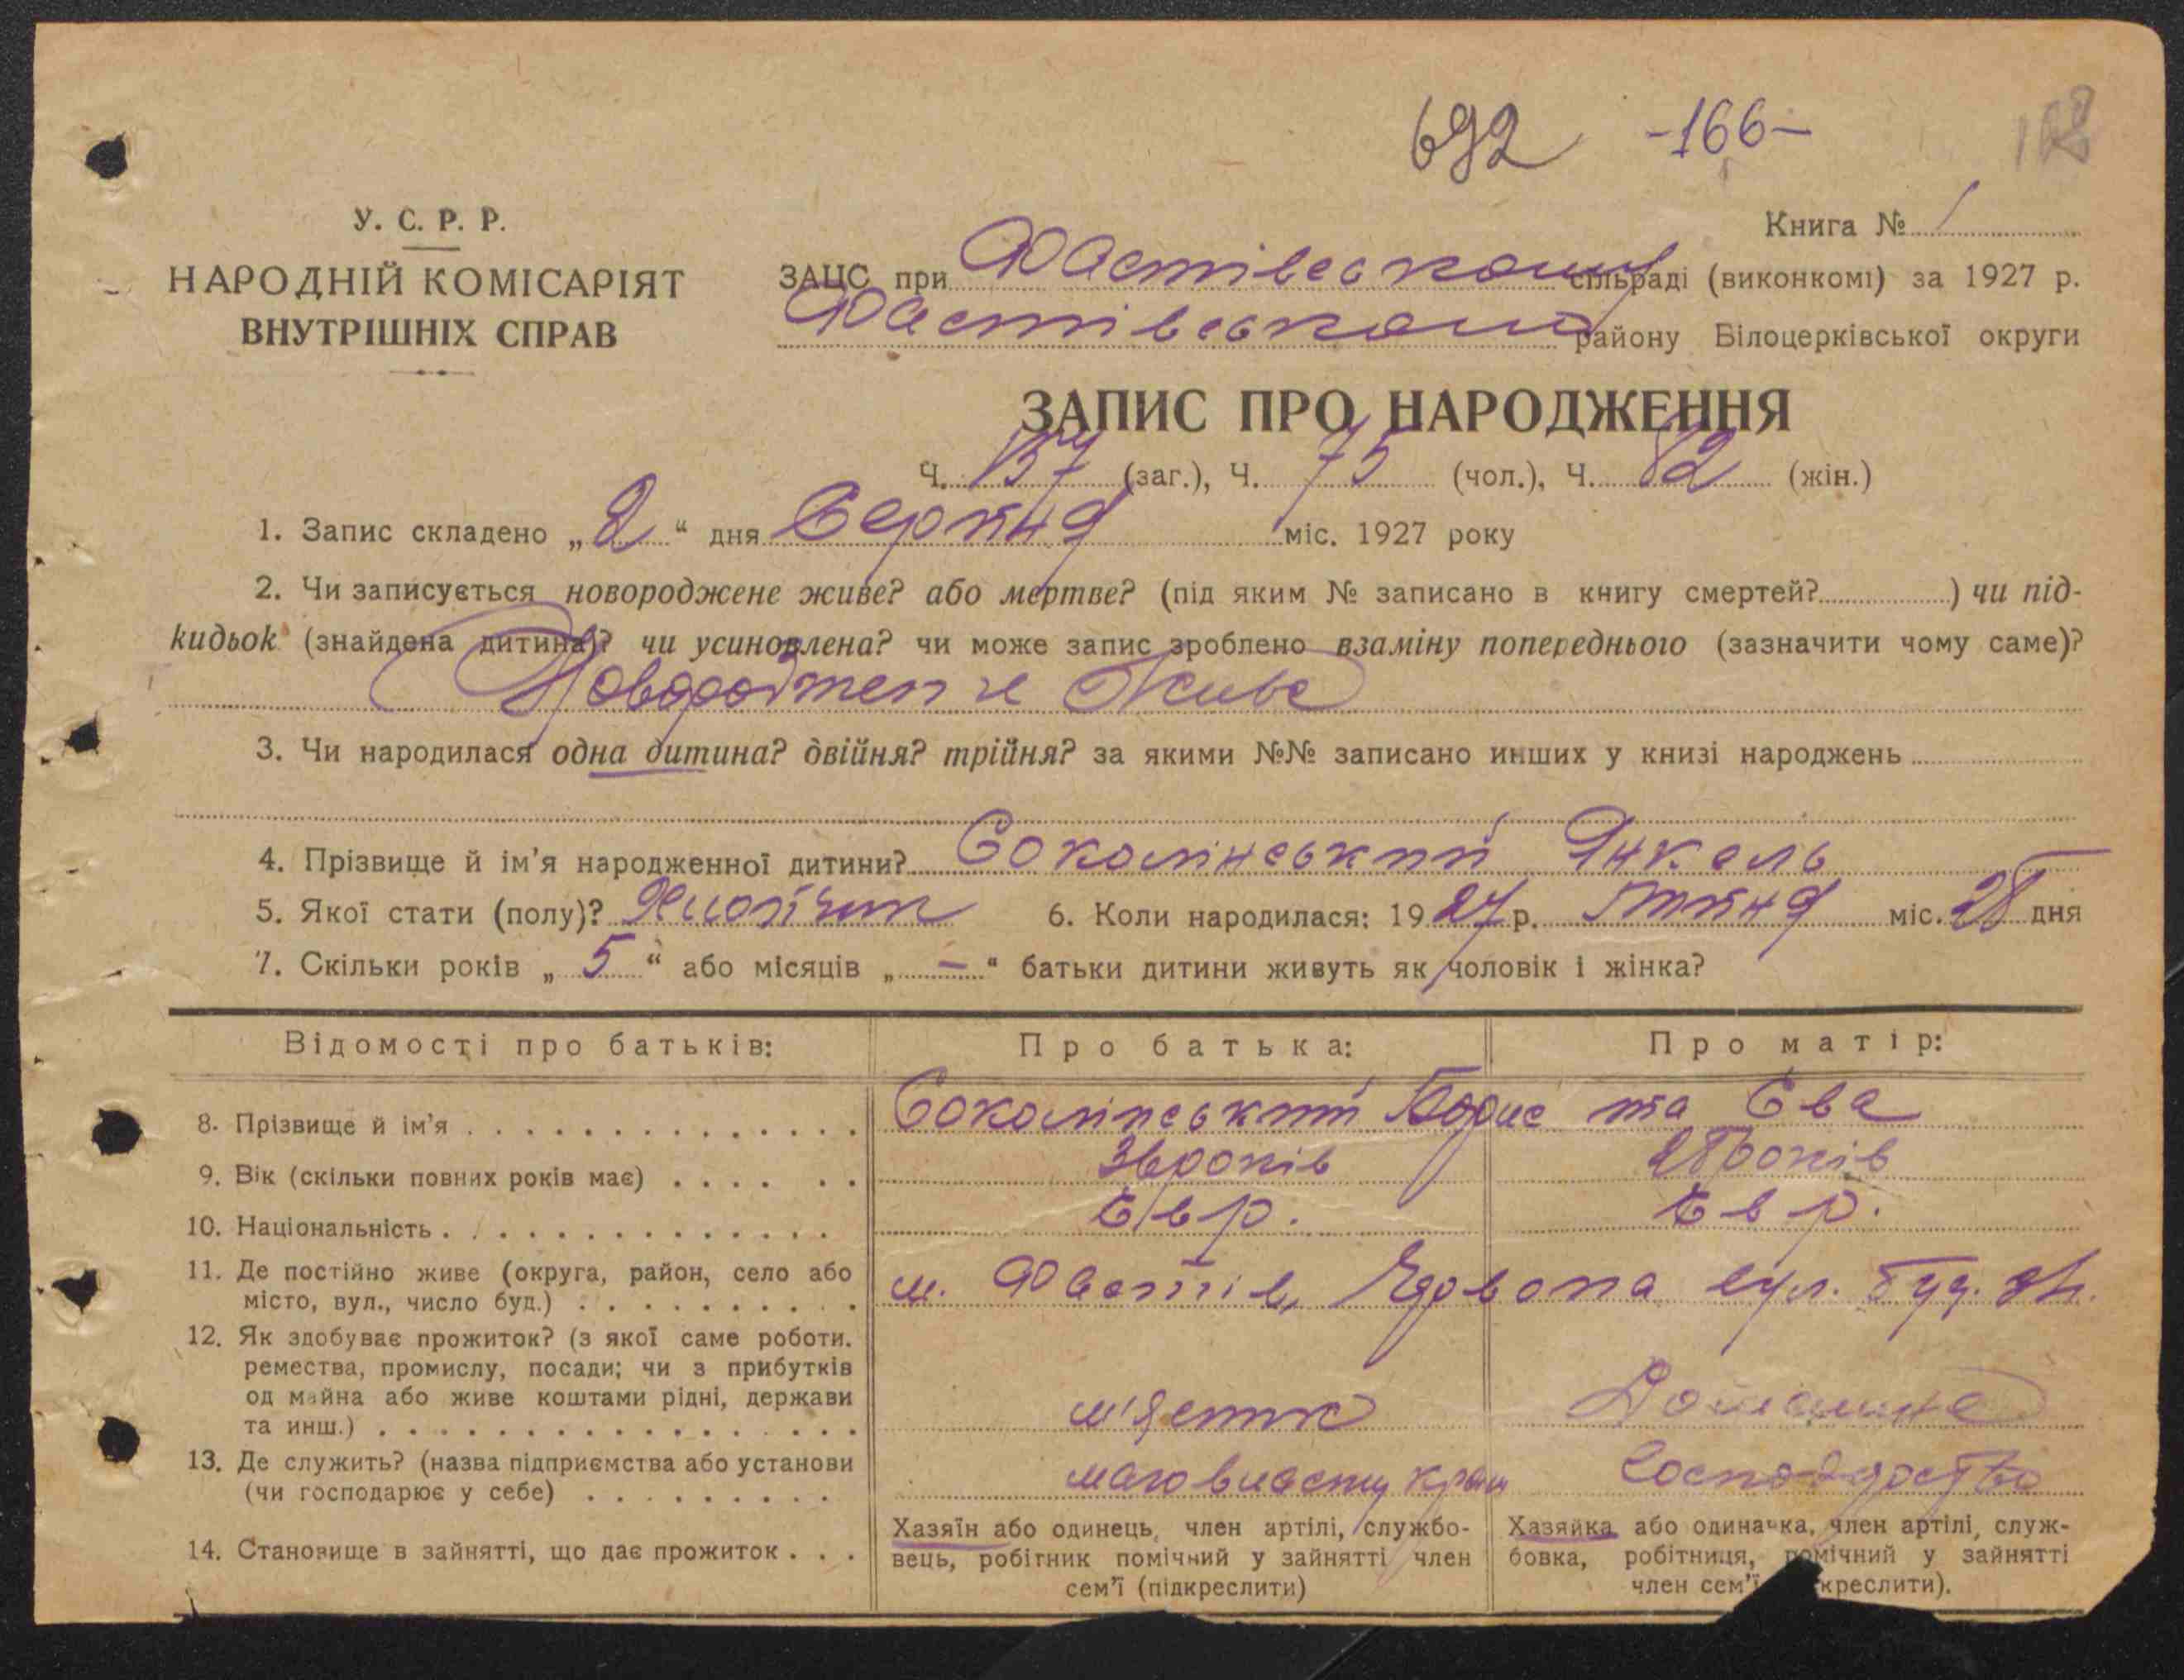 692 -166-
У. С. Р. Р.
НАРОДНІЙ КОМІСАРІЯТ
ВНУТРІШНІХ СПРАВ
Книга № 1
ЗАЦС при Фастівському сільраді (виконкомі) за 1927 р.
Фастівському району Білоцерківської округи
ЗАПИС ПРО НАРОДЖЕННЯ
Ч. 157 (заг.), Ч. 75 (чол.), Ч. 82 (жін.)
1. Запис складено „2“ дня Серпня міс. 1927 року
2. Чи записується новороджене живе? або мертве? (під яким № записано в книгу смертей? ) чи під-
кидьок (знайдена дитина)? чи усиновлена? чи може запис зроблено взаміну попереднього (зазначити чому саме)?
Живе
3. Чи народилася одна дитина? двійня? трійня? за якими №№ записано инших у книзі народжень
4. Прізвище й ім'я народженної дитини? Соколінський Янкель
5. Якої стати (полу)? 6. Коли народилася: 1927 р. міс. 28 дня
7. Скільки років „5“ або місяців „—“ батьки дитини живуть як чоловік і жінка?
Відомості про батьків: Про батька: Про матір:
8. Прізвище й ім'я Соколінський Борис та Єва
9. Вік (скільки повних років має) 36 років 28 років
10. Національність Євр. Євр.
11. Де постійно живе (округа, район, село або
місто, вул., число буд.) м. Фастів, вул. буд.
12. Як здобуває прожиток? (з якої саме роботи.
ремества, промислу, посади; чи з прибутків
од майна або живе коштами рідні, держави
та инш.) Домашнє
13. Де служить? (назва підприємства або установи
(чи господарює у себе) маю власну крам господарство
14. Становище в зайнятті, що дає прожиток
Хазяїн або одинець, член артілі, службо-
вець, робітник помічний у зайнятті член
сем'ї (підкреслити)
Хазяйка або одиначка, член артілі, служ-
бовка, робітниця, помічний у зайнятті
член сем'ї креслити).